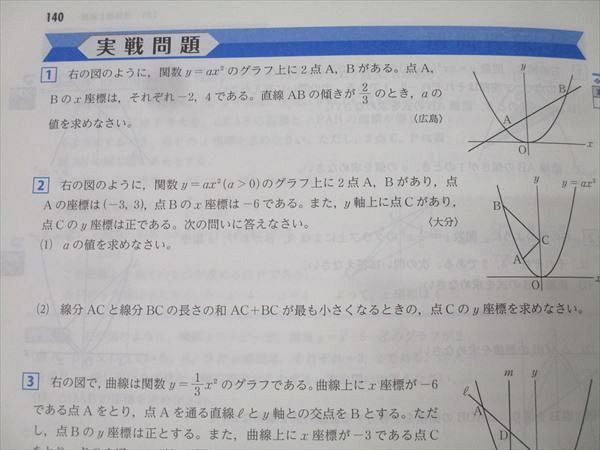 140
実戦問題
1 右の図のように，関数 y=ax² のグラフ上に2点A，Bがある。点A，
Bのx座標は，それぞれ−2，4である。直線ABの傾きが 2/3 のとき，aの
値を求めなさい。 〈広島〉
y
B
A
O
x
2 右の図のように，関数 y=ax²(a>0)のグラフ上に2点A，Bがあり，点
Aの座標は(−3, 3)，点Bのx座標は−6である。また，y軸上に点Cがあり，
点Cのy座標は正である。次の問いに答えなさい。 〈大分〉
(1) aの値を求めなさい。
y
y=ax²
B
C
A
O
x
(2) 線分ACと線分BCの長さの和AC+BCが最も小さくなるときの，点Cのy座標を求めなさい。
3 右の図で，曲線は関数 y=1/3x² のグラフである。曲線上にx座標が−6
である点Aをとり，点Aを通る直線ℓとy軸との交点をBとする。ただ
し，点Bのy座標は正とする。また，曲線上にx座標が−3である点C
m
y
ℓ
A
D